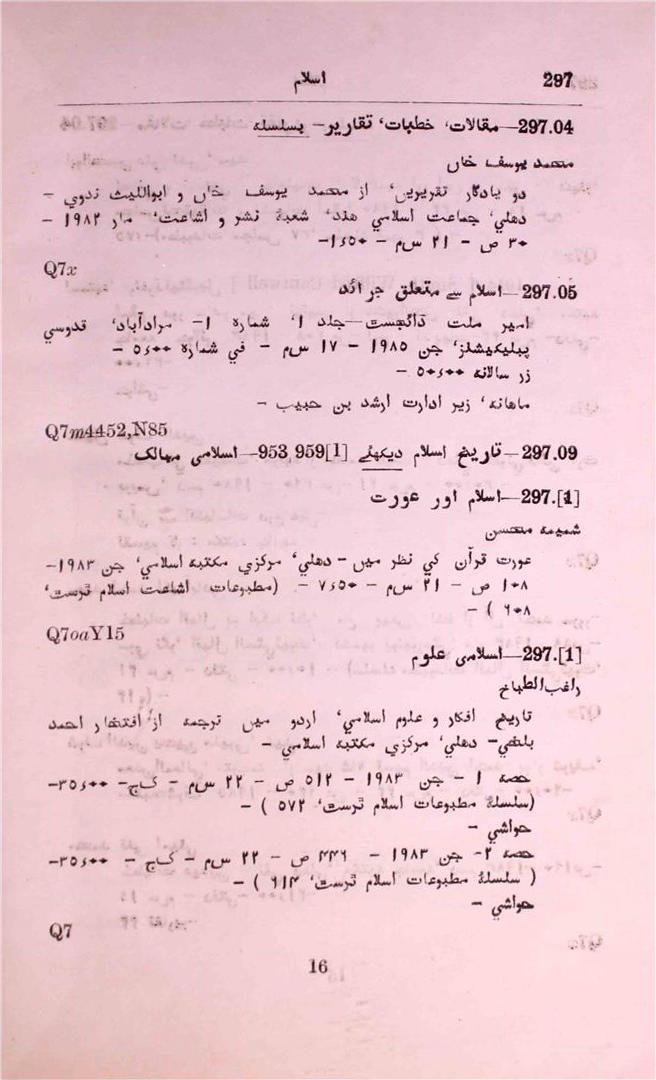 297 اسلام
297.04—مقالات، خطبات، تقاریر— بسلسلہ
محمد یوسف خاں
دو یادگار تقریریں، از محمد یوسف خاں و ابواللیث ندوي —
دهلي، جماعت اسلامي هند، شعبۂ نشر و اشاعت، مار ۱۹۸۲ —
۳۰ ص — ۲۱ س م — ۱ء۵۰—
Q7x
297.05—اسلام سے متعلق جرائد
امیر ملت ڈائجسٹ—جلد ۱، شمارہ ۱— مرادآباد، قدوسي
پبلیکیشنز، جن ۱۹۸۵ — ۱۷ س م — في شمارہ ۵ء۰۰ —
زر سالانہ ۵۰ء۰۰ —
ماهانہ، زیر ادارت ارشد بن حبیب —
Q7m4452,N85
297.09—تاریخ اسلام دیکھئے [1]959 953—اسلامی ممالک
297.[1]—اسلام اور عورت
شمیمہ محسن
عورت قرآن کي نظر میں — دهلي، مرکزي مکتبہ اسلامي، جن ۱۹۸۳—
۱۰۸ ص — ۲۱ س م — ۷ء۵۰ — (مطبوعات اشاعت اسلام ٹرسٹ،
۶۰۸ ) —
Q7oaY15
297.[1]—اسلامی علوم
راغب الطباخ
تاریخ افکار و علوم اسلامي، اردو میں ترجمہ از افتخار احمد
بلخي— دهلي، مرکزي مکتبہ اسلامي —
حصہ ۱ — جن ۱۹۸۳ — ۵۱۲ ص — ۲۲ س م — ک ج— ۳۵ء۰۰—
(سلسلۂ مطبوعات اسلام ٹرسٹ، ۵۷۲ ) —
حواشي —
حصہ ۲— جن ۱۹۸۳ — ۴۴۶ ص — ۲۲ س م — ک ج — ۳۵ء۰۰—
( سلسلۂ مطبوعات اسلام ٹرسٹ، ۶۱۴ ) —
حواشي —
Q7
16